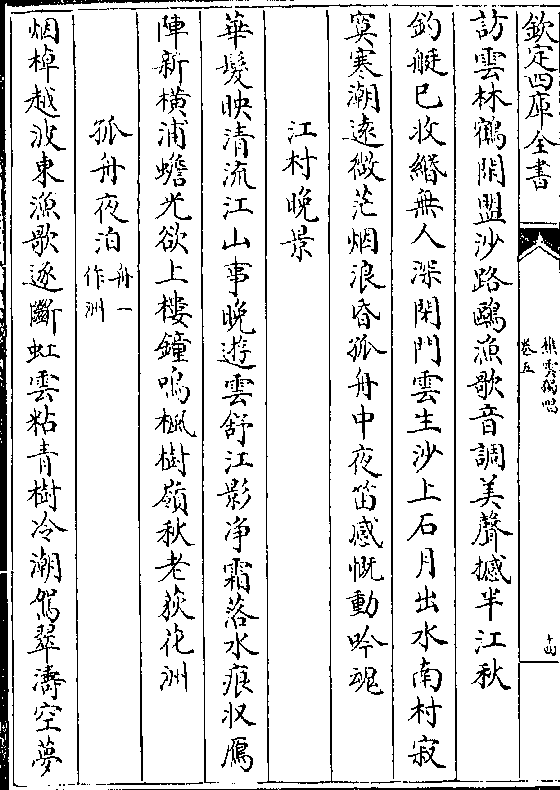 欽定四庫全書
樵雲獨唱
卷五
十四
訪雲林鶴閑盟沙路鷗漁歌音調美聲撼半江秋
釣艇已收緡無人深閉門雲生沙上石月出水南村寂
寞寒潮遠微茫烟浪昏孤舟中夜笛感慨動吟魂
江村晚景
華髮映清流江山事晚遊雲舒江影净霜落水痕收鴈
陣新横浦蟾光欲上樓鐘鳴楓樹嶺秋老荻花洲
孤舟夜泊舟一作洲
烟棹越波東漁歌逐斷虹雲粘青樹冷潮駕翠濤空夢